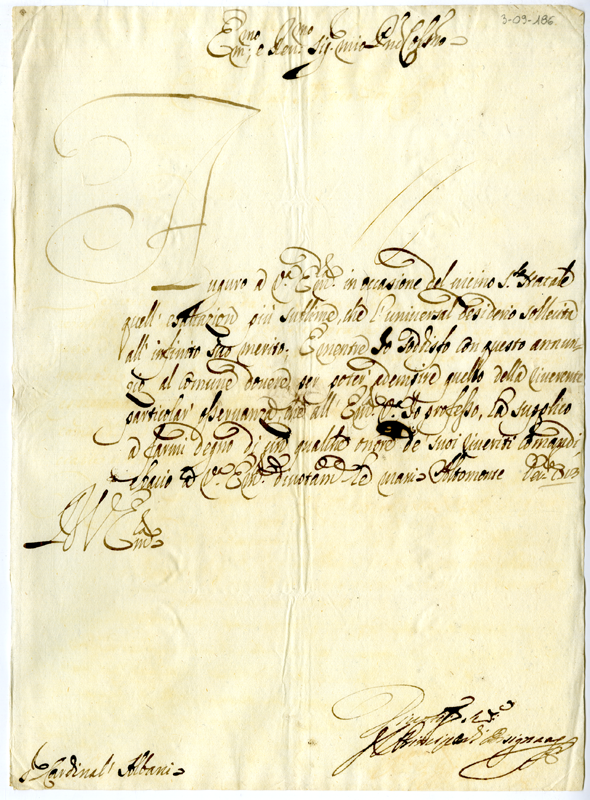 3-09-186
Em.no e Rev.mo Sig. mio P.ne Coll.mo
Auguro a V.a Em.za in occasione del vicino S.to Natale
quell'esaltazione più sublime, che l'universal desiderio sollecita
all'infinito suo merito; E mentre Io sodisfo con questo annun-
zio al comune dovere, per poter adempire quello della riverente
particolar osservanza che all'Em.za V.ra Io professo, La supplico
a farmi degno di qualche onore de' suoi riveriti comandi,
e bacio a V.a Em.za divotam.te le mani. Solmonte
Di V. Em.za
Cardinal' Albani
Divotis.o
Il Principe di Bisignano